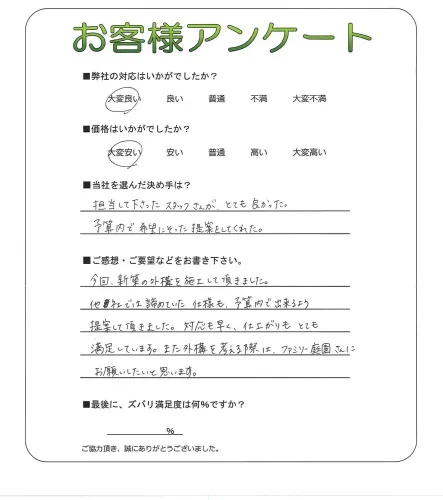 お客様アンケート
■弊社の対応はいかがでしたか?
大変良い 良い 普通 不満 大変不満
■価格はいかがでしたか?
大変安い 安い 普通 高い 大変高い
■当社を選んだ決め手は?
担当して下さった スタッフさんが、とても 良かった。
予算内で 希望にそった 提案をしてくれた。
■ご感想・ご要望などをお書き下さい。
今回、新築の外構を施工して頂きました。
他社では 諦めていた 仕様も、予算内で出来るよう
提案して頂きました。 対応も早く、仕上がりも とても
満足しています。また外構を考える際は、ファミリー庭園さんに
お願いしたいと思います。
■最後に、ズバリ満足度は何%ですか?
%
ご協力頂き、誠にありがとうございました。